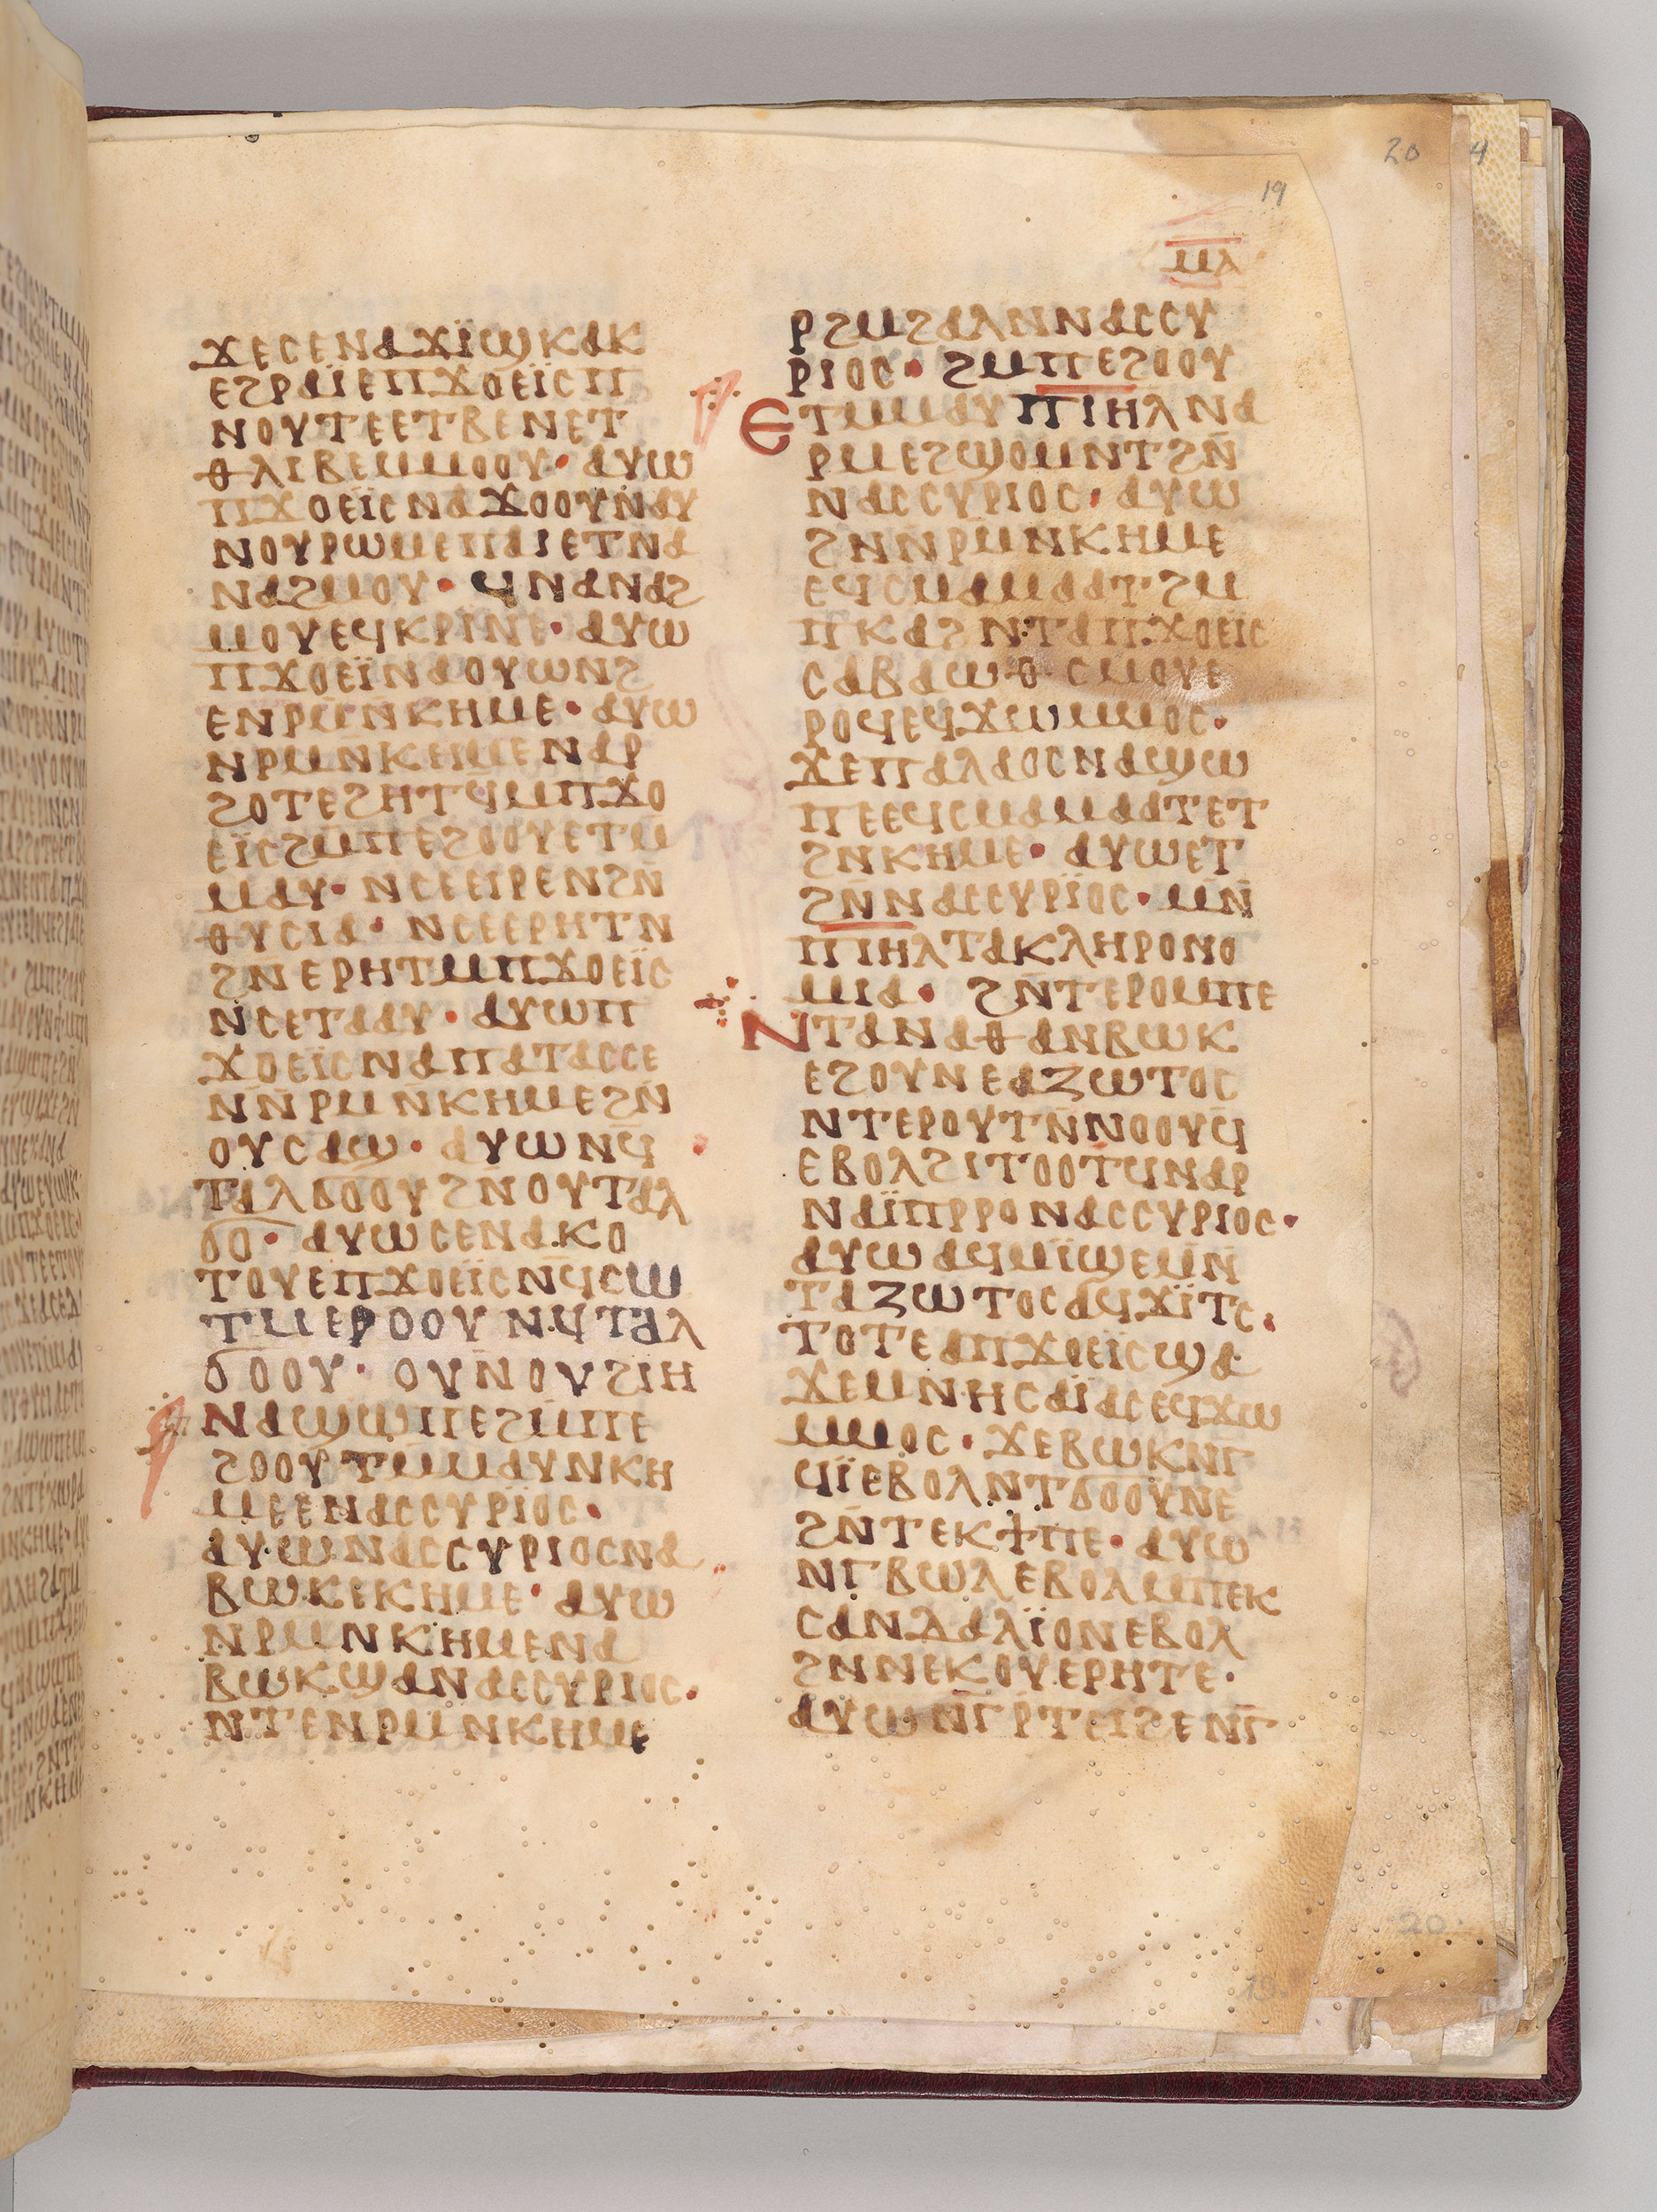 20 4
19
ⲙⲁ
ϫⲉⲥⲉⲛⲁϫⲓ̈ϣⲕⲁⲕ
ⲉϩⲣⲁⲓ̈ⲉⲡϫⲟⲉⲓ̈ⲥⲡ
ⲛⲟⲩⲧⲉⲉⲧⲃⲉⲛⲉⲧ
ⲑⲗⲓⲃⲉⲙⲙⲟⲟⲩ· ⲁⲩⲱ
ⲡϫⲟⲉⲓ̈ⲥⲛⲁϫⲟⲟⲩⲛⲁⲩ
ⲛⲟⲩⲣⲱⲙⲉⲡⲁⲓⲉⲧⲛⲁ
ⲛⲁϩⲙⲟⲩ· ϥⲛⲁⲛⲁϩ
ⲙⲟⲩⲉϥⲕⲣⲓⲛⲉ· ⲁⲩⲱ
ⲡϫⲟⲉⲓ̈ⲛⲁⲟⲩⲱⲛϩ
ⲉⲛⲣⲙ̄ⲛⲕⲏⲙⲉ· ⲁⲩⲱ
ⲛⲣⲙⲛ̄ⲕⲏⲙⲉⲛⲁⲣ
ϩⲟⲧⲉϩⲏⲧϥ̄ⲙⲡϫⲟ
ⲉⲓ̈ⲥϩⲙ̄ⲡⲉϩⲟⲟⲩⲉⲧⲙ̄
ⲙⲁⲩ· ⲛⲥⲉⲉⲓⲣⲉⲛϩⲛ̄
ⲑⲩⲥⲓⲁ· ⲛⲥⲉⲉⲣⲏⲧⲛ
ϩⲛ̄ⲉⲣⲏⲧⲙⲡϫⲟⲉⲓ̈ⲥ
ⲛ̇ⲥⲉⲧⲁⲁⲩ· ⲁⲩⲱⲡ
ϫⲟⲉⲓ̈ⲥⲛⲁⲡⲁⲧⲁⲥⲥⲉ
ⲛⲛ̄ⲣⲙⲛ̄ⲕⲏⲙⲉϩⲛ̄
ⲟⲩⲥⲁϣ· ⲁⲩⲱⲛϥ̄
ⲧⲁⲗϭⲟⲟⲩϩⲛⲟⲩⲧⲁⲗ
ϭⲟ· ⲁⲩⲱⲥⲉⲛⲁⲕⲟ
ⲧⲟⲩⲉⲡϫⲟⲉⲓ̈ⲥⲛ̄ϥⲥⲱ
ⲧⲙⲉⲣⲟⲟⲩⲛϥⲧⲁⲗ
ϭⲟⲟⲩ· ⲟⲩⲛ̄ⲟⲩϩⲓⲏ
ⲛⲁϣⲱⲡⲉϩⲙ̄ⲡⲉ
ϩⲟⲟⲩⲧⲙⲙⲁⲩⲛⲕⲏ
ⲙⲉⲉⲛⲁⲥⲥⲩⲣⲓ̈ⲟⲥ·
ⲁⲩⲱⲛⲁⲥⲥⲩⲣⲓⲟⲥⲛⲁ
ⲃⲱⲕⲉⲕⲏⲙⲉ· ⲁⲩⲱ
ⲛⲣⲙⲛⲕⲏⲙⲉⲛⲁ
ⲃⲱⲕϣⲁⲛⲁⲥⲥⲩⲣⲓⲟⲥ·
ⲛⲧⲉⲛⲣⲙⲛⲕⲏⲙⲉ
ⲣϩⲙϩⲁⲗⲛⲛⲁⲥⲥⲩ
ⲣⲓⲟⲥ· ϩⲙⲡⲉϩⲟⲟⲩ
ⲉⲧⲙⲙⲁⲩⲡⲓⲏⲗⲛⲁ
ⲣⲙⲉϩϣⲟⲙⲛⲧϩⲛ̄
ⲛⲁⲥⲥⲩⲣⲓⲟⲥ· ⲁⲩⲱ
ϩⲛⲛ̄ⲣⲙⲛⲕⲏⲙⲉ
ⲉϥⲥⲙⲁⲙⲁⲁⲧ·ϩⲙ
ⲡⲕⲁϩⲛⲧⲁⲡϫⲟⲉⲓ̈ⲥ
ⲥⲁⲃⲁⲱⲑ·ⲥⲙⲟⲩⲉ
ⲣⲟϥⲉϥϫⲱⲙⲙⲟⲥ·
ϫⲉⲡⲁⲗⲁⲟⲥⲛⲁϣⲱ
ⲡⲉⲉϥⲥⲙⲁⲙⲁⲁⲧⲉⲧ
ϩⲛⲕⲏⲙⲉ· ⲁⲩⲱⲉⲧ
ϩⲛ̄ⲛⲁⲥⲥⲩⲣⲓ̈ⲟⲥ· ⲙⲛ̄
ⲡⲓⲏⲗⲧⲁⲕⲗⲏⲣⲟⲛⲟ
ⲙⲓⲁ· ϩⲛ̄ⲧⲉⲣⲟⲙⲡⲉ
ⲛⲧⲁⲛⲁⲑⲁⲛⲃⲱⲕ
ⲉϩⲟⲩⲛⲉⲁⲍⲱⲧⲟⲥ
ⲛⲧⲉⲣⲟⲩⲧⲛ̄ⲛⲟⲟⲩϥ̄
ⲉⲃⲟⲗϩⲓⲧⲟⲟⲧϥⲛⲁⲣ
ⲛⲁⲓ̈ⲡⲣⲣⲟⲛⲁⲥⲥⲩⲣⲓⲟⲥ·
ⲁⲩⲱⲁϥⲙⲓ̈ϣⲉⲙⲛ̄
ⲧⲁⲍⲱⲧⲟⲥⲁϥϫⲓ̈ⲧⲥ·
ⲧⲟⲧⲉⲁⲡϫⲟⲉⲓ̈ⲥϣⲁ
ϫⲉⲙⲛⲏⲥⲁⲓ̈ⲁⲥⲉϥϫⲱ
ⲙⲙⲟⲥ· ϫⲉⲃⲱⲕⲛⲅ̄
ϥⲓ̈ⲉⲃⲟⲗⲛⲧϭⲟⲟⲩⲛⲉ
ϩⲛ̄ⲧⲉⲕϯⲡⲉ· ⲁⲩⲱ
ⲛⲅⲃⲱⲗⲉⲃⲟⲗⲙⲡⲉⲕ
ⲥⲁⲛⲇⲁⲗⲓ̈ⲟⲛⲉⲃⲟⲗ
ϩⲛⲛⲉⲕⲟⲩⲉⲣⲏⲧⲉ·
ⲁⲩⲱⲛⲅ̄ⲣ̄ⲧⲉⲓϩⲉⲛⲅ̄
20
19.